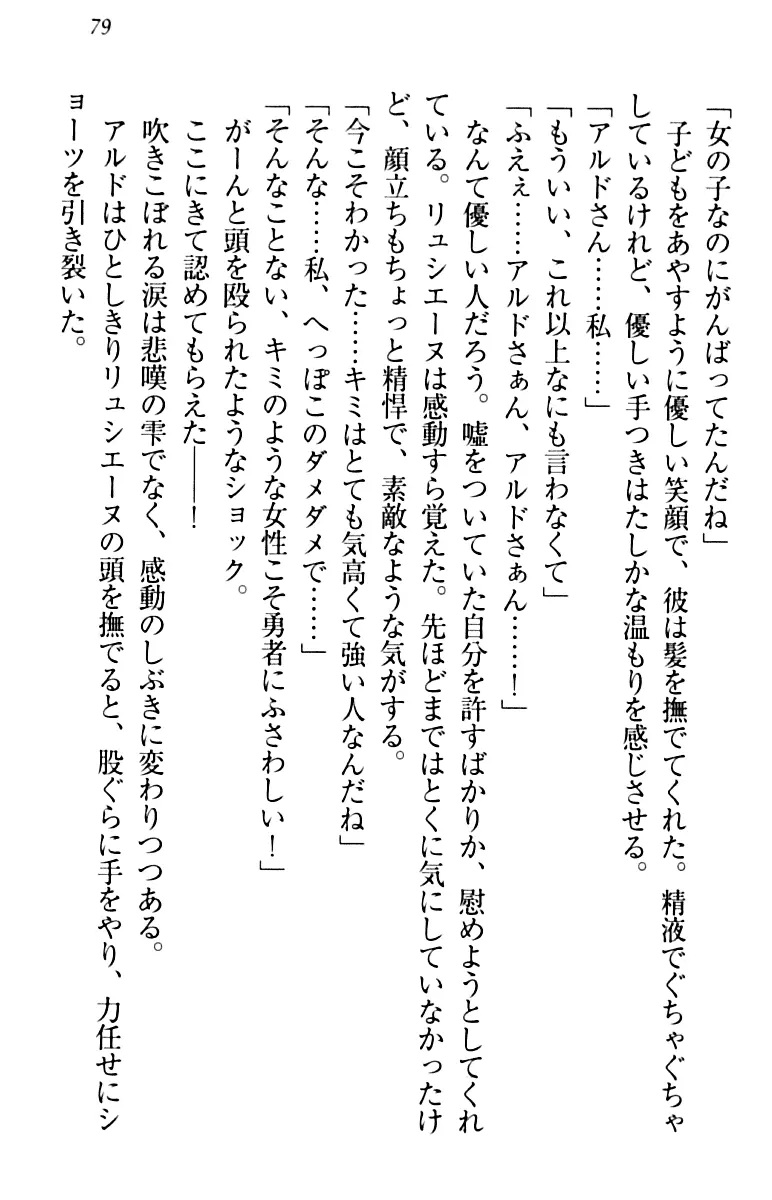 79
「女の子なのにがんばってたんだね」
　子どもをあやすように優しい笑顔で、彼は髪を撫でてくれた。精液でぐちゃぐちゃ
しているけれど、優しい手つきはたしかな温もりを感じさせる。
「アルドさん……私……」
「もういい、これ以上なにも言わなくて」
「ふえぇ……アルドさぁん、アルドさぁん……！」
　なんて優しい人だろう。嘘をついていた自分を許すばかりか、慰めようとしてくれ
ている。リュシエーヌは感動すら覚えた。先ほどまではとくに気にしていなかったけ
ど、顔立ちもちょっと精悍で、素敵なような気がする。
「今こそわかった……キミはとても気高くて強い人なんだね」
「そんな……私、へっぽこのダメダメで……」
「そんなことない、キミのような女性こそ勇者にふさわしい！」
　がーんと頭を殴られたようなショック。
　ここにきて認めてもらえた――！
　吹きこぼれる涙は悲嘆の雫でなく、感動のしぶきに変わりつつある。
　アルドはひとしきりリュシエーヌの頭を撫でると、股ぐらに手をやり、力任せにシ
ョーツを引き裂いた。